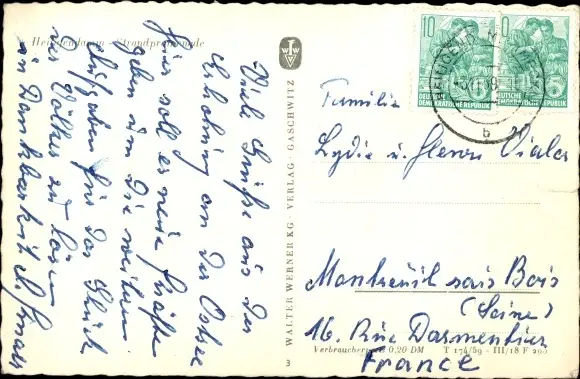 Heiligendamm - Strandpromenade
Viele Grüße aus der
Erholung an der Ostsee
Hier soll es neue Kräfte
geben um die weiteren
Aufgaben für das Glück
der Völker zu lösen
in Dankbarkeit
WALTER WERNER KG · VERLAG · GASCHWITZ
3
10
DEUTSCHE
DEMOKRATISCHE REPUBLIK
DEUTSCHE
DEMOKRATISCHE REPUBLIK
b
Familie
Lydie u.
Montreuil sois Bois
(Seine)
16. Rue Darmentier
France
Verbraucherpreis 0,20 DM
T 174/59 - III/18 F 290